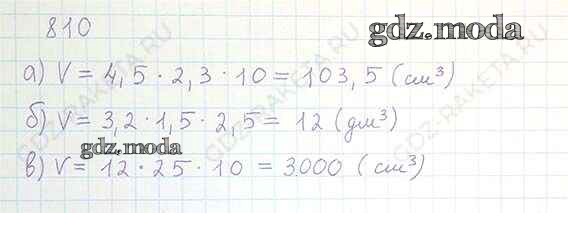 810
gdz.moda
а) V = 4,5 · 2,3 · 10 = 103,5 (см³)
б) V = 3,2 · 1,5 · 2,5 = 12 (дм³)
gdz.moda
в) V = 12 · 25 · 10 = 3000 (см³)
gdz.moda
GDZ-RAKETA.RU
GDZ-RAKETA.RU
GDZ-RAKETA.RU